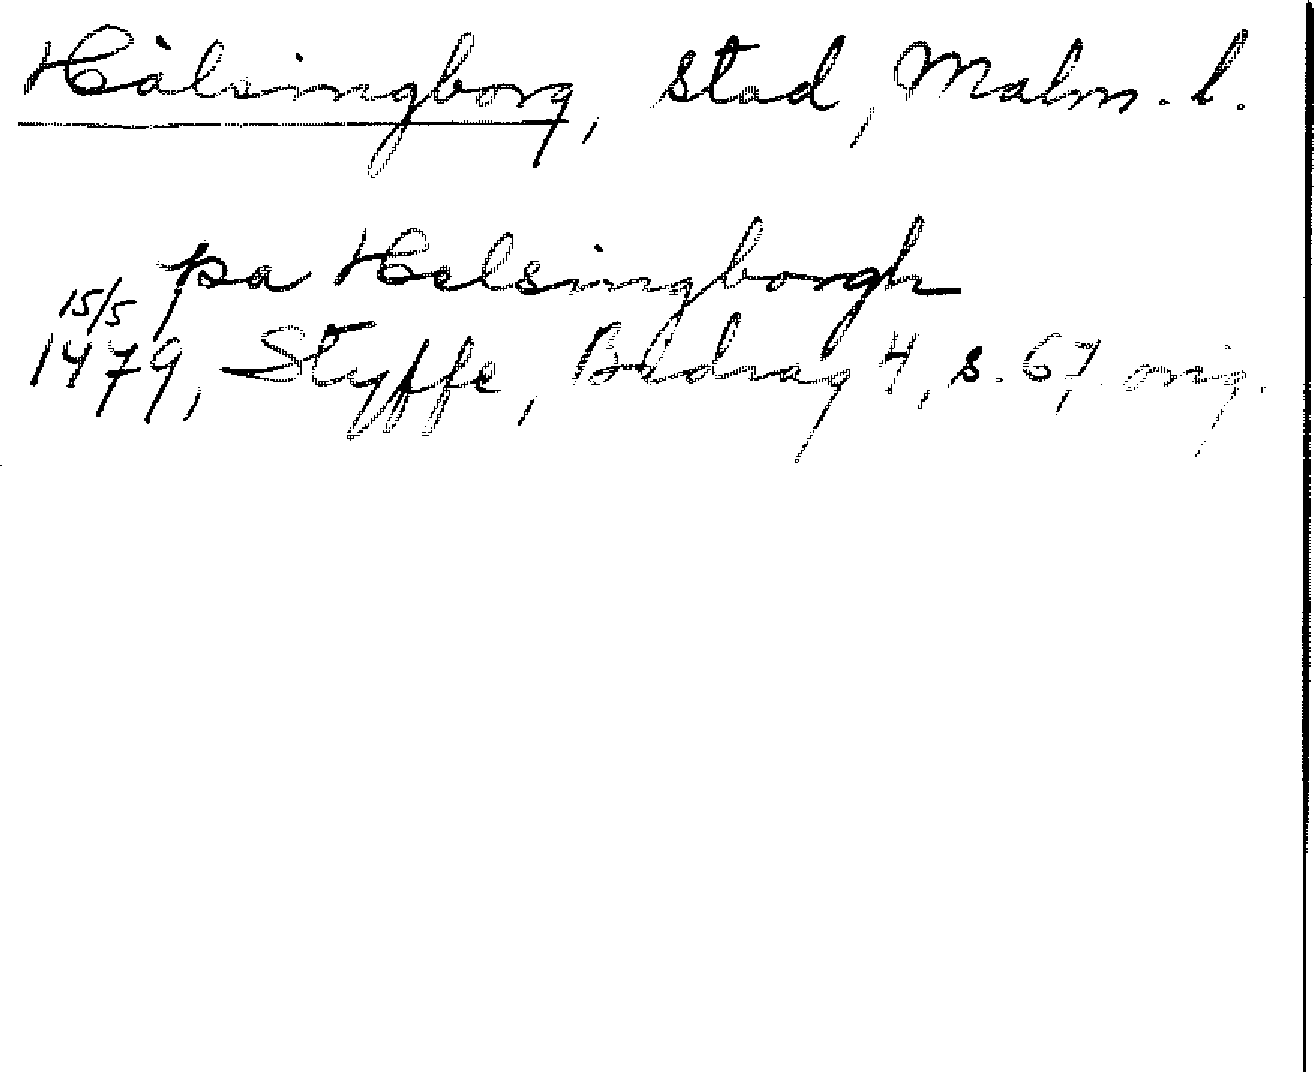 Hälsingborg, stad, Malm. l.
pa Helsingborgh
15/5
1479, Styffe, Bidrag 4, s. 67, orig.